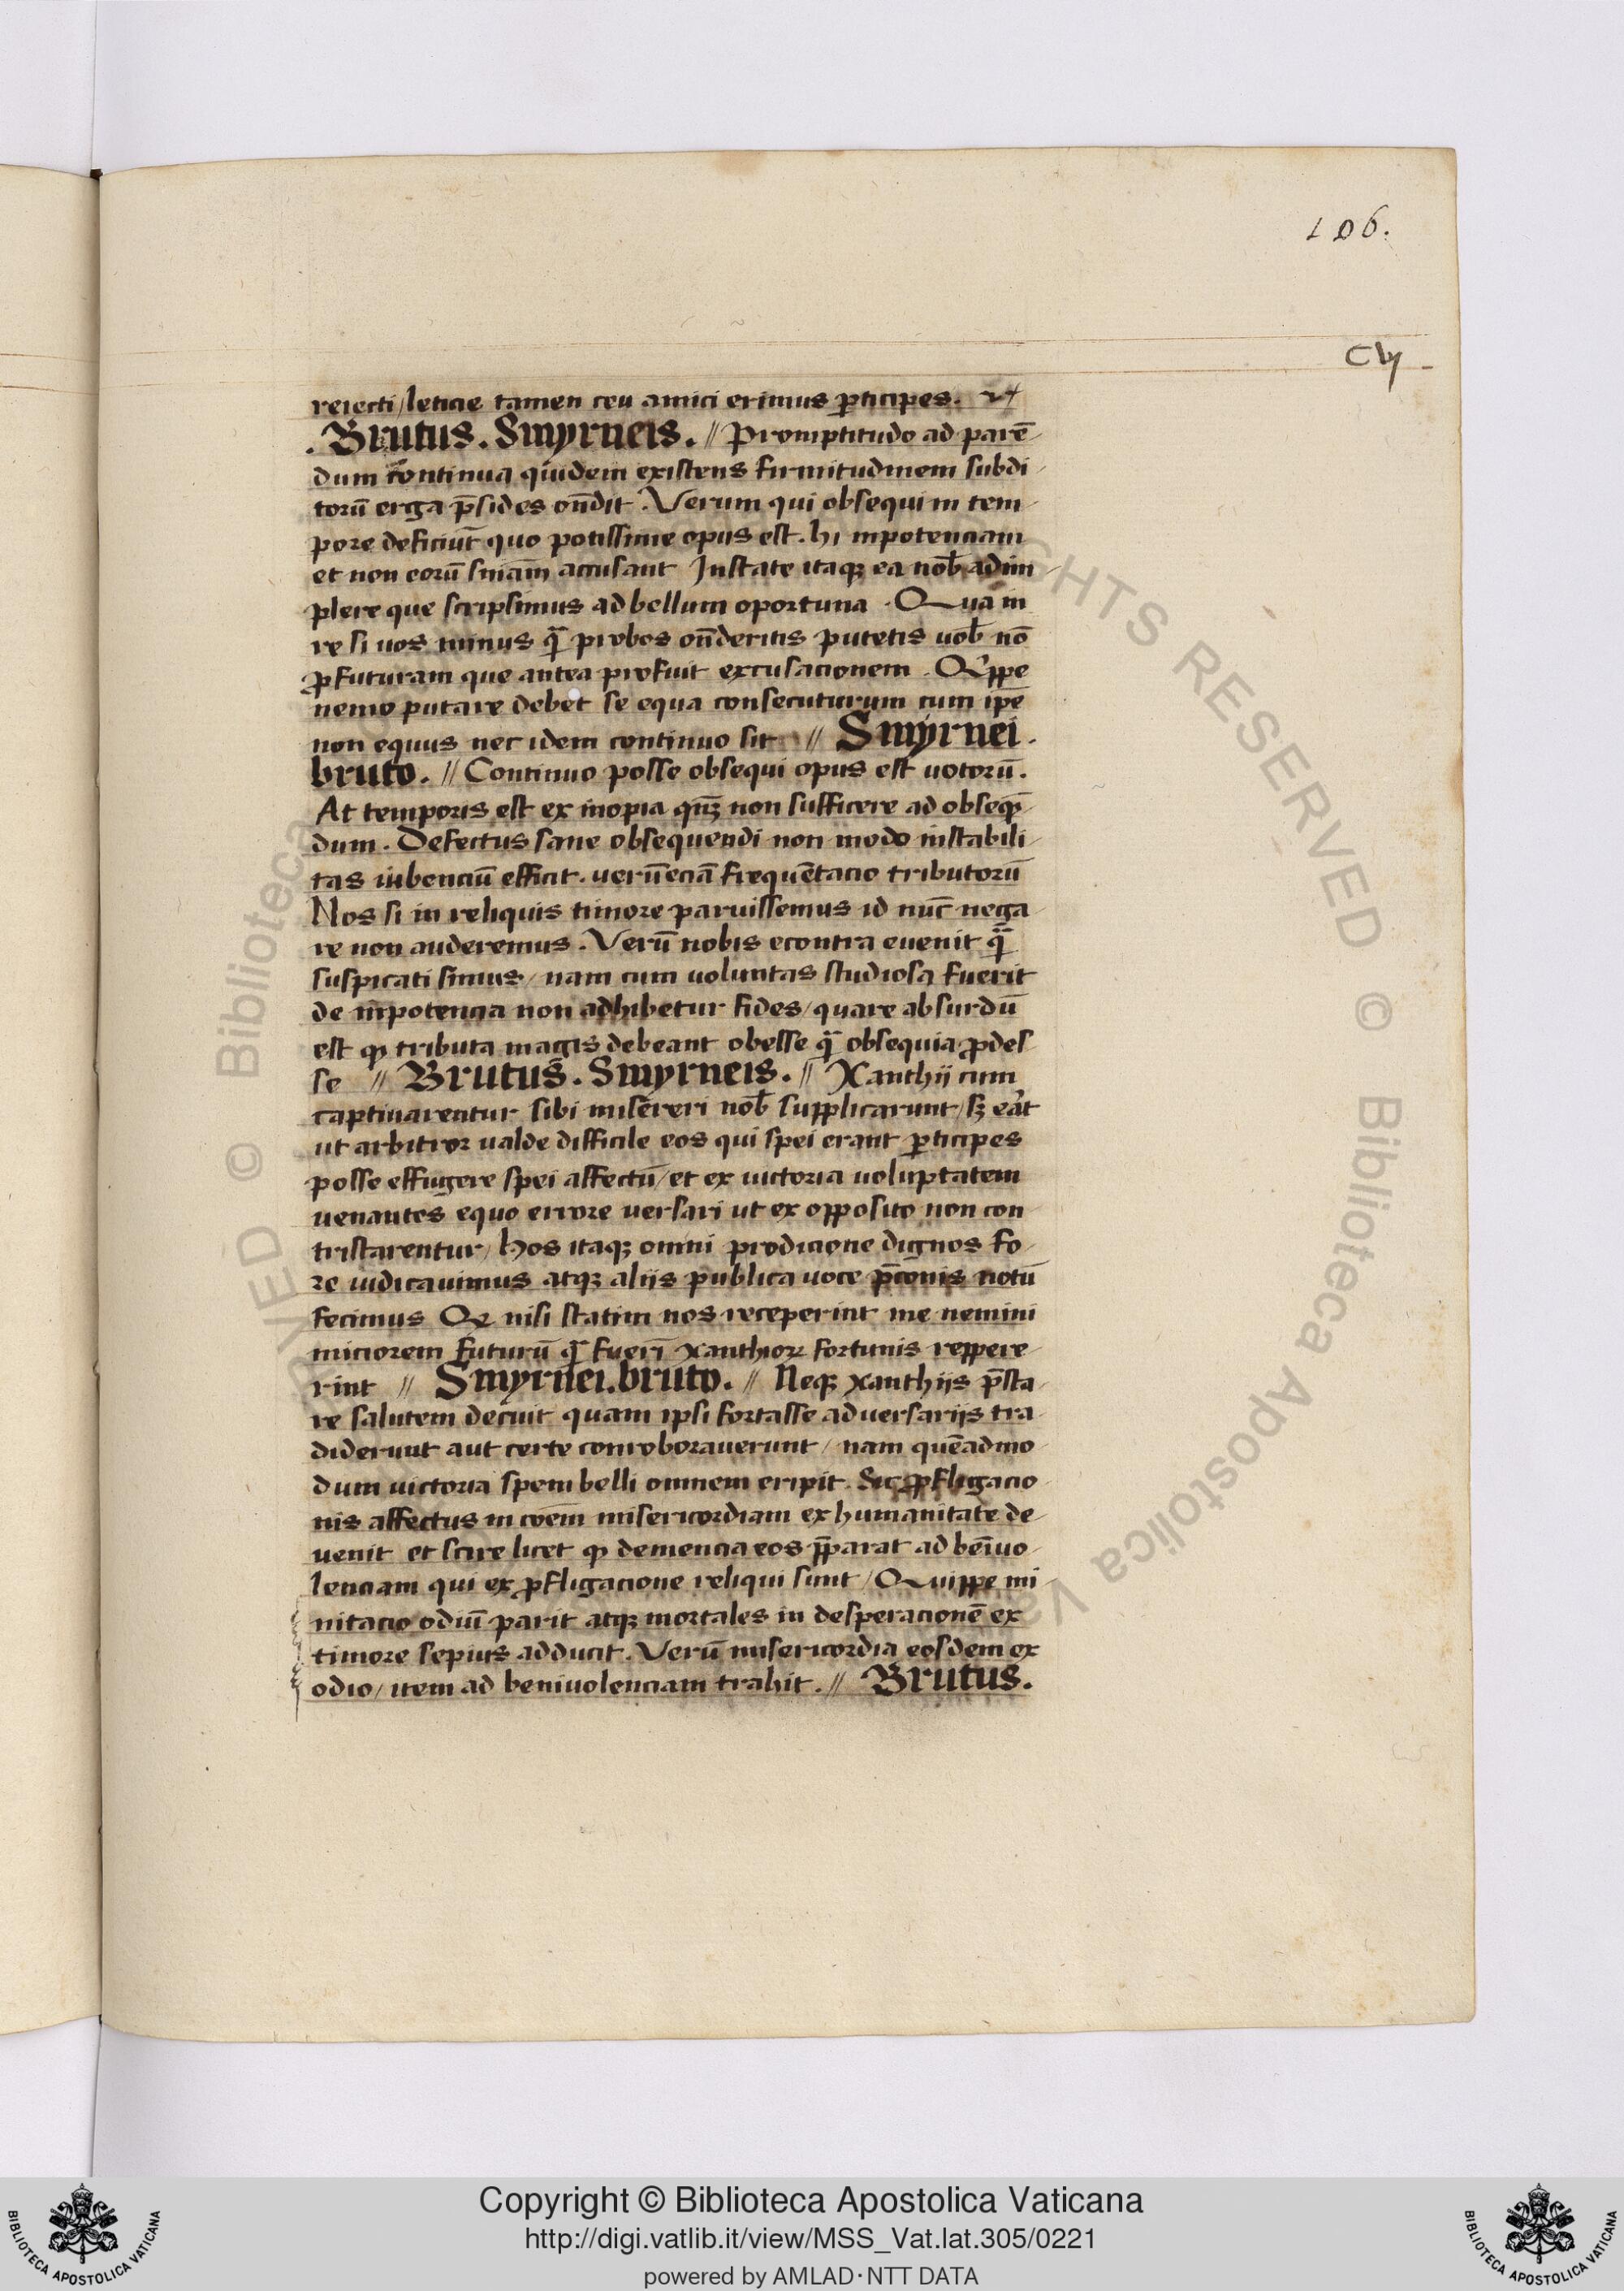 106.
CVJ
reiecti / leticie tamen ceu amici erimus ꝑticipes.
. Brutus. Smyrneis. // Promptitudo ad parē
dum continua quidem existens firmitudinem subdi
torū erga p̄sides on̄dit. Verum qui obsequi in tem
pore deficiūt quo potissime opus est. hi inpotenciam
et non eorū sniam̄ accusant Instate itaqꝫ ea nob̄ adim
plere que scripsimus ad bellum oportuna. Qua in
re si uos minus qᷓ probos on̄deritis putetis uob̄ nō
ꝓfuturam que antea profuit excusacionem. Qͥppe
nemo putare debet se equa consecuturum cum ip̄e
non equus nec idem continuo sit // Smyrnei.
bruto. // Continuo posse obsequi opus est uotorū.
At temporis est ex inopia qn̄qꝫ non sufficere ad obseqn̄
dum. Defectus sane obsequendi non modo instabili
tas iubenciū efficit. uerūeciā frequētacio tributorū
Nos si in reliquis timore paruissemus id nūc nega
re non auderemus. Verū nobis econtra euenit qᷓ
suspicati simus / nam cum uoluntas studiosa fuerit
de inpotencia non adhibetur fides / quare absurdū
est ꝙ tributa magis debeant obesse qᷓ obsequia ꝓdes
se // Brutus. Smyrneis. // Xanthii cum
captiuarentur sibi misereri nob̄ supplicarunt / sꝫ erat
ut arbitror ualde difficile eos qui spei erant ꝑticipes
posse effugere spei affectū / et ex uictoria uoluptatem
uenantes equo errore uersari ut ex opposito non con
tristarentur / hos itaqꝫ omni prodicione dignos fo
re iudicauimus atqꝫ aliis publica uoce p̄conis notū
fecimus Qꝫ nisi statim nos receperint me nemini
miciorem futurū qᷓ fueri xanthioꝝ fortunis reppere
rint // Smyrnei. bruto. // Neqꝫ xanthiis p̄sta
re salutem decuit quam ipsi fortasse aduersariis tra
diderunt aut certe corroborauerunt / nam quēadmo
dum uictoria spem belli omnem eripit. Sic ꝓfligacio
nis affectus in coēm misericordiam ex humanitate de
uenit et scire licet ꝙ clemencia eos p̄parat ad beīuo
lenciam qui ex ꝓfligacione reliqui sunt / Quippe mi
nitacio odiū parit atqꝫ mortales in desperacionē ex
timore sepius adducit. Verū misericordia eosdem ex
odio / item ad beniuolenciam trahit. // Brutus.
Copyright © Biblioteca Apostolica Vaticana
http://digi.vatlib.it/view/MSS_Vat.lat.305/0221
powered by AMLAD·NTT DATA